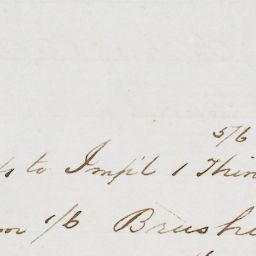 5/6
to Imp'l 1 Thin
1/6 Brushe